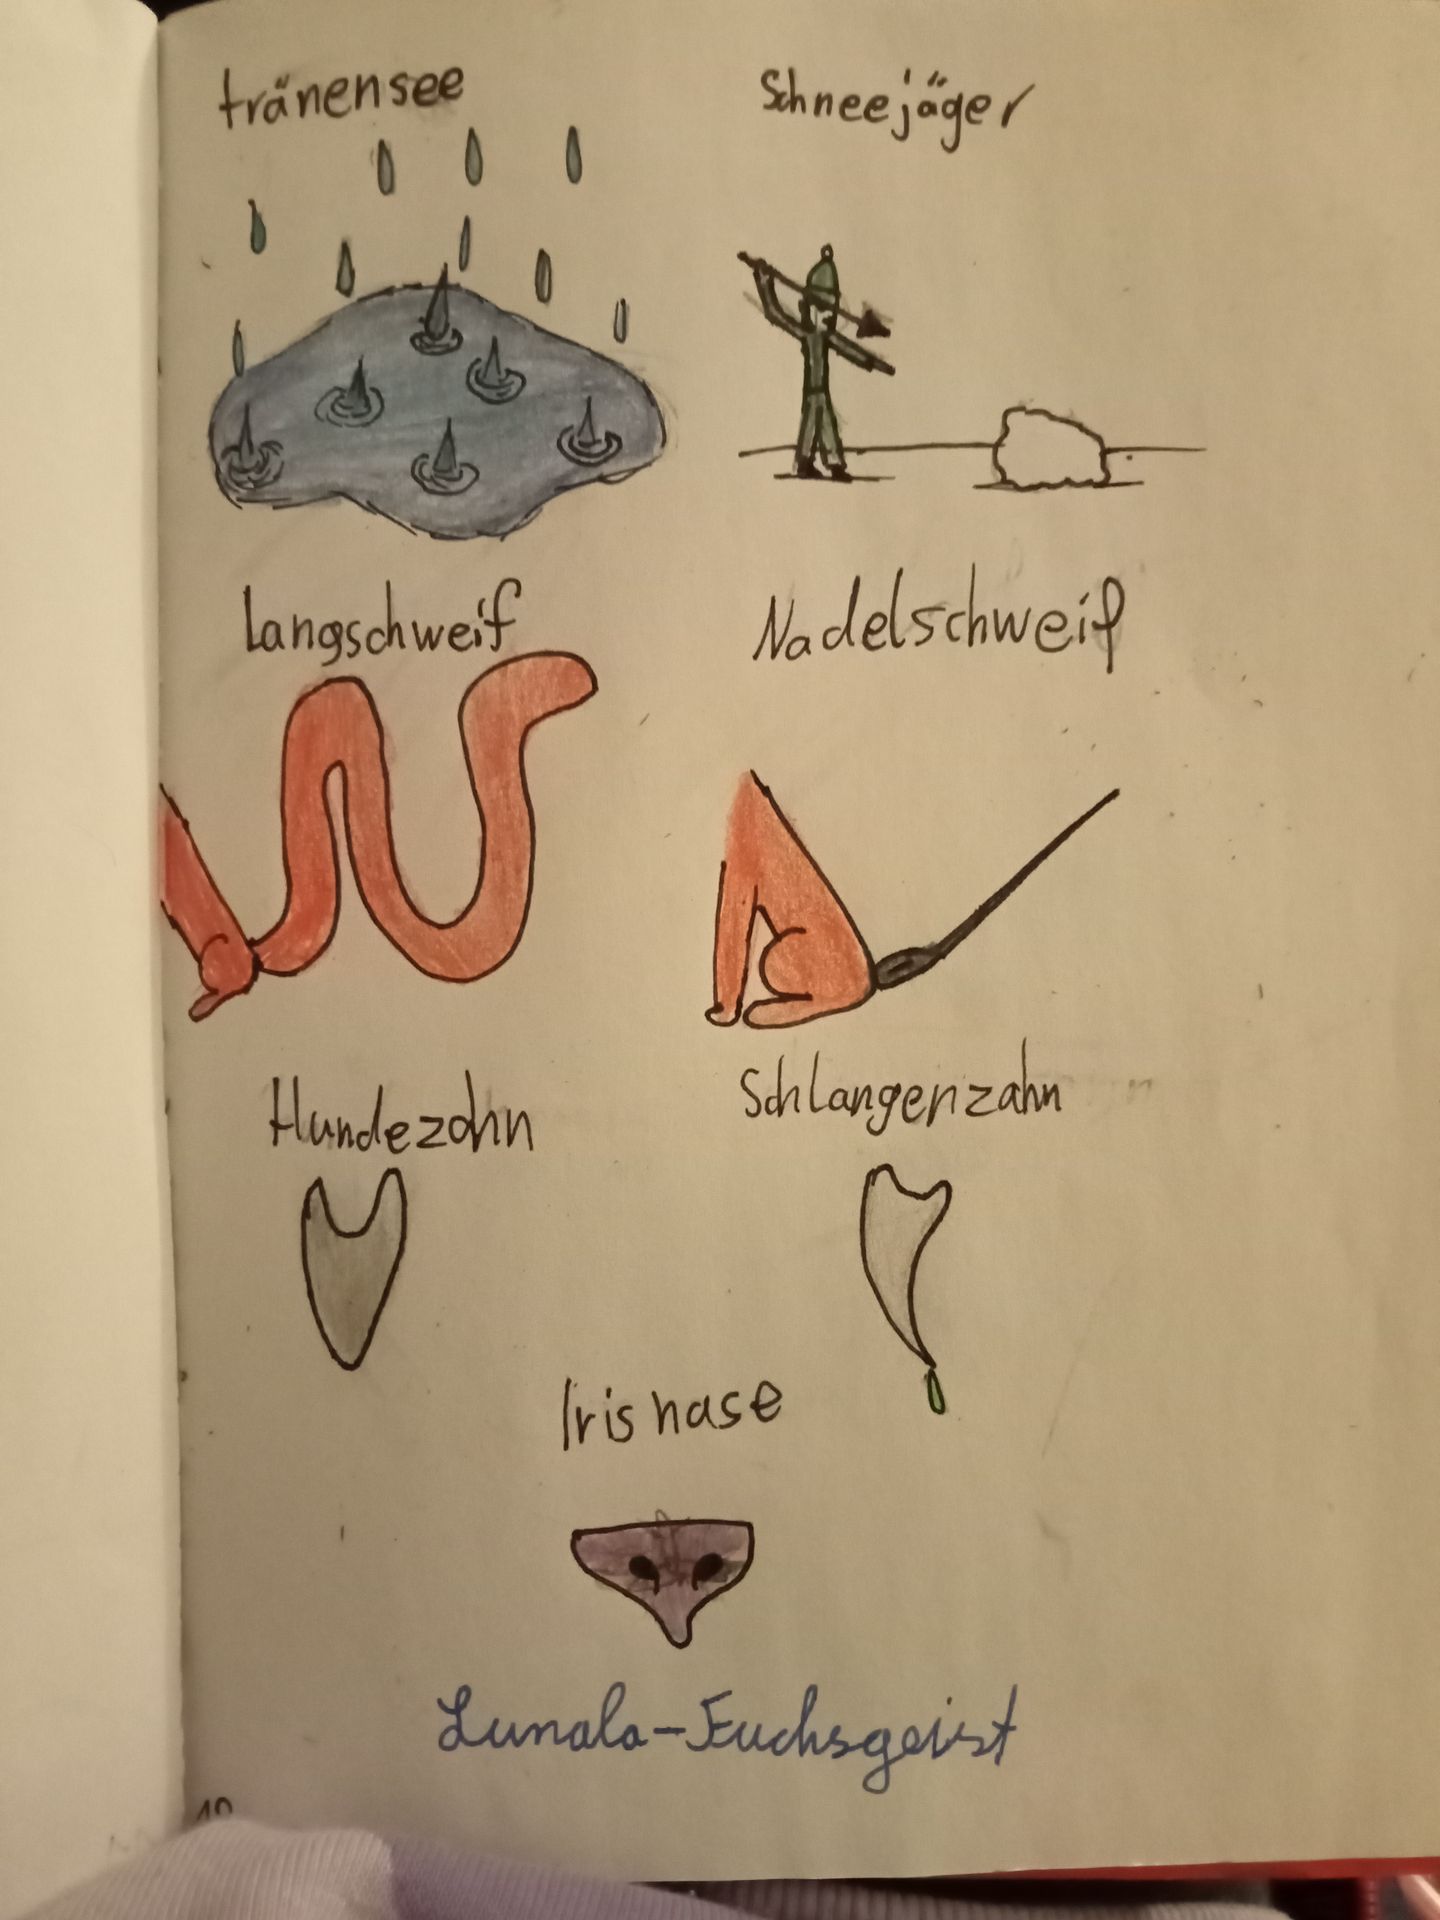 tränensee
Schneejäger
Langschweif
Nadelschweif
Hundezahn
Schlangenzahn
Irisnase
Lunala-Fuchsgeist